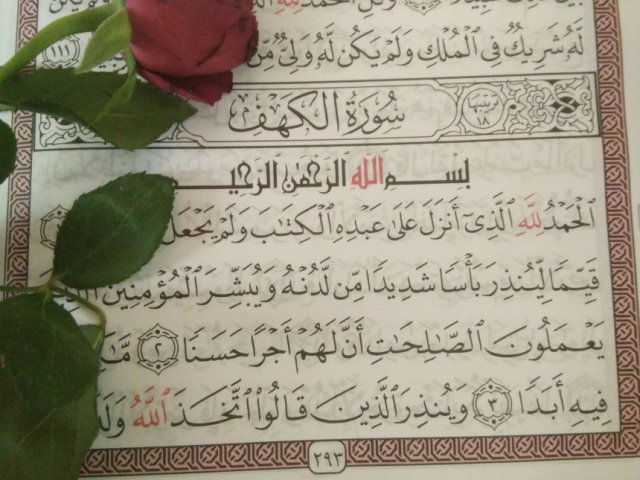 وَقُلِ ٱلْحَمْدُ لِلَّهِ
لَّهُۥ شَرِيكٌ فِى ٱلْمُلْكِ وَلَمْ يَكُن لَّهُۥ وَلِىٌّ مِّنَ ١١١
سُورَةُ الكَهْفِ ترتيبها ١٨
بِسْمِ ٱللَّهِ ٱلرَّحْمَٰنِ ٱلرَّحِيمِ
ٱلْحَمْدُ لِلَّهِ ٱلَّذِىٓ أَنزَلَ عَلَىٰ عَبْدِهِ ٱلْكِتَٰبَ وَلَمْ يَجْعَل
قَيِّمًا لِّيُنذِرَ بَأْسًا شَدِيدًا مِّن لَّدُنْهُ وَيُبَشِّرَ ٱلْمُؤْمِنِينَ
يَعْمَلُونَ ٱلصَّٰلِحَٰتِ أَنَّ لَهُمْ أَجْرًا حَسَنًا ٢
فِيهِ أَبَدًا ٣ وَيُنذِرَ ٱلَّذِينَ قَالُوا۟ ٱتَّخَذَ ٱللَّهُ
٢٩٣